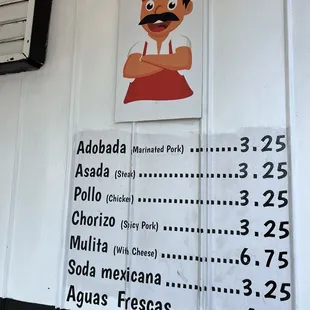 Adobada (Marinated Pork) ........3.25
Asada (Steak) ..................3.25
Pollo (Chicken) ................3.25
Chorizo (Spicy Pork) ...........3.25
Mulita (With Cheese) ...........6.75
Soda mexicana ..............3.25
Aguas Frescas